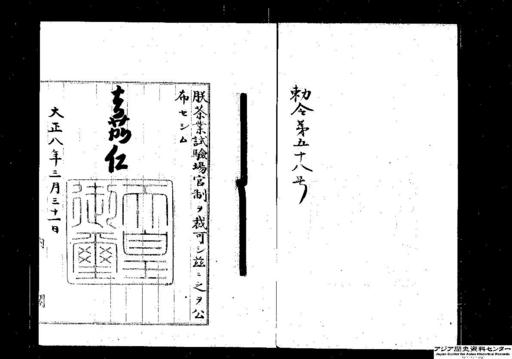 勅令第五十八号
朕茶業試験場官制ヲ裁可シ茲ニ之ヲ公
布セシム
嘉仁
天皇
御璽
大正八年三月三十一日
内閣
アジア歴史資料センター
Japan Center for Asian Historical Records